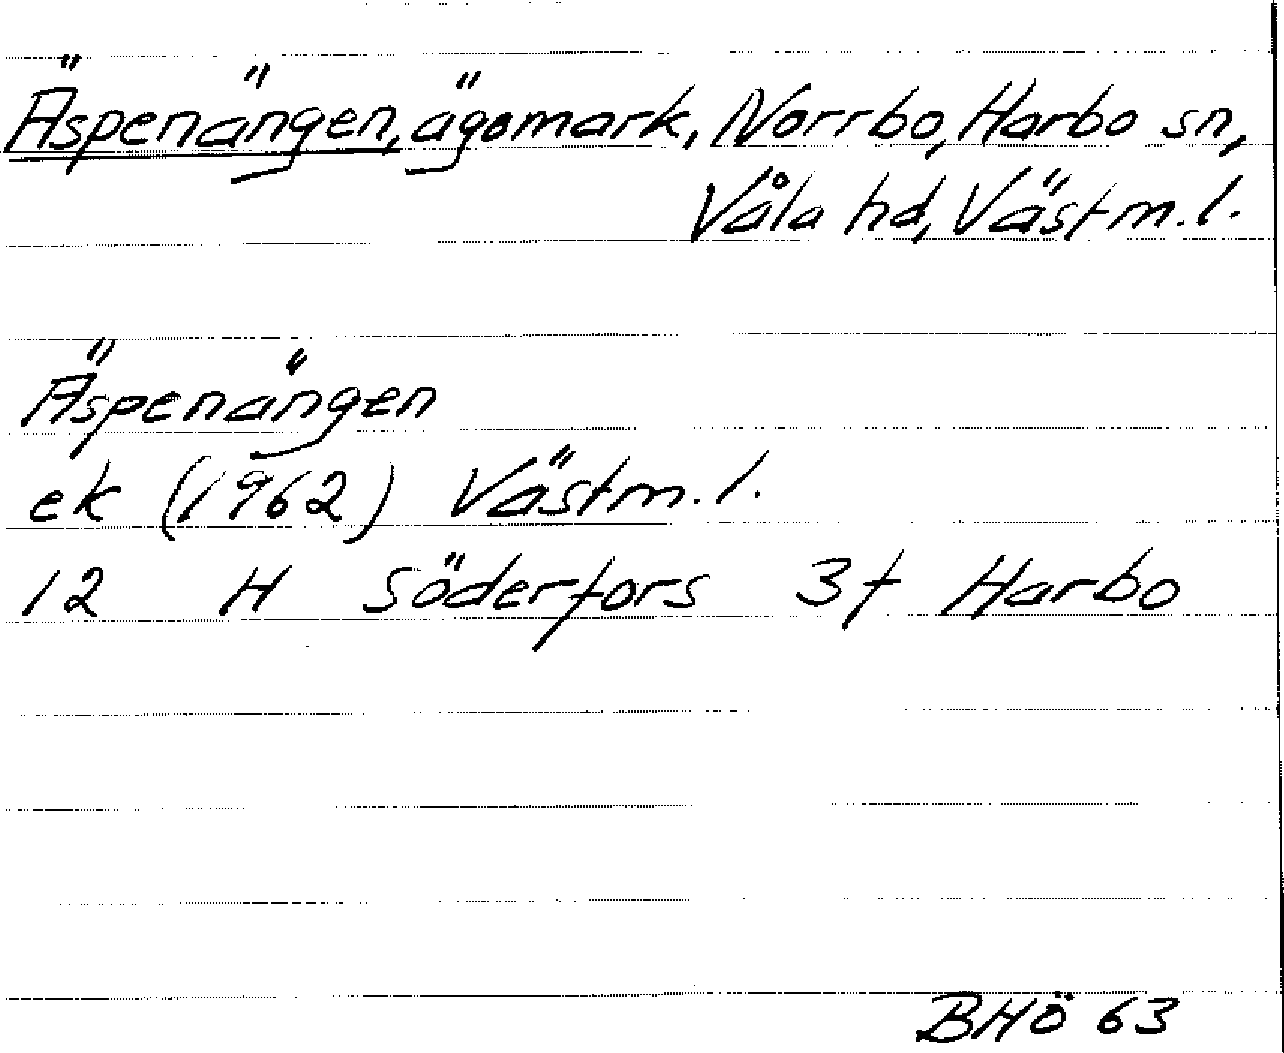 Äspenängen, ägomark, Norrbo, Harbo sn,
Våla hd, Västm. l.
Äspenängen
ek (1962) Västm. l.
12 H Söderfors 3f Harbo
BHÖ 63